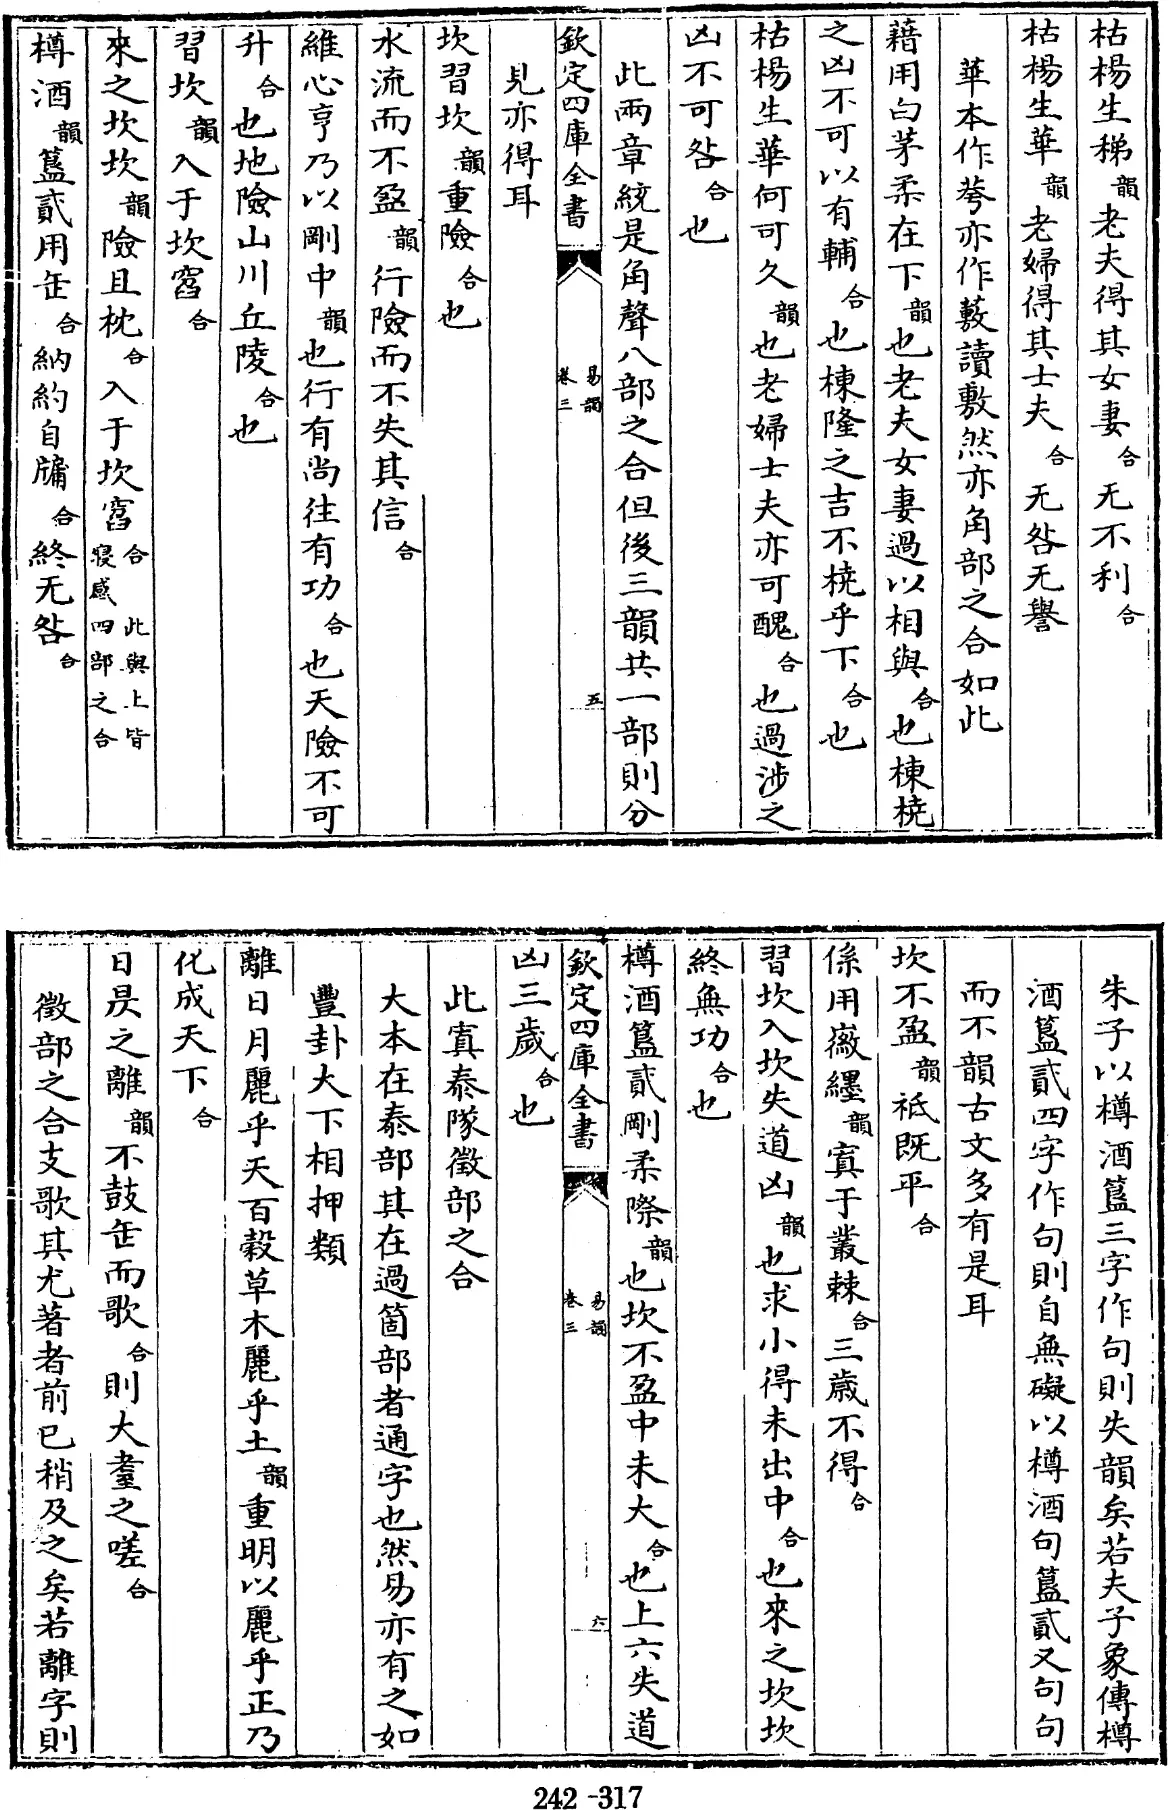 枯楊生稊韻老夫得其女妻合无不利合
枯楊生華韻老婦得其士夫合无咎无譽
華本作荂亦作藪讀敷然亦角部之合如此
藉用白茅柔在下韻也老夫女妻過以相與合也棟橈
之凶不可以有輔合也棟隆之吉不橈乎下合也
枯楊生華何可久韻也老婦士夫亦可醜合也過涉之
凶不可咎合也
此兩章統是角聲八部之合但後三韻共一部則分
欽定四庫全書
易韻
卷三
五
見亦得耳
坎習坎韻重險合也
水流而不盈韻行險而不失其信合
維心亨乃以剛中韻也行有尚往有功合也天險不可
升合也地險山川丘陵合也
習坎韻入于坎窞合
來之坎坎韻險且枕合入于坎窞合此與上皆寑感四部之合
樽酒韻簋貳用缶合納約自牖合終无咎合
朱子以樽酒簋三字作句則失韻矣若夫子象傳樽
酒簋貳四字作句則自無礙以樽酒句簋貳又句句
而不韻古文多有是耳
坎不盈韻祇既平合
係用徽纆韻寘于叢棘合三歲不得合
習坎入坎失道凶韻也求小得未出中合也來之坎坎
終無功合也
樽酒簋貳剛柔際韻也坎不盈中未大合也上六失道
欽定四庫全書
易韻
卷三
六
凶三歲合也
此寘泰隊徵部之合
大本在泰部其在過箇部者通字也然易亦有之如
豐卦大下相押類
離日月麗乎天百穀草木麗乎土韻重明以麗乎正乃
化成天下合
日昃之離韻不鼓缶而歌合則大耋之嗟合
徵部之合支歌其尤著者前已稍及之矣若離字則
242-317